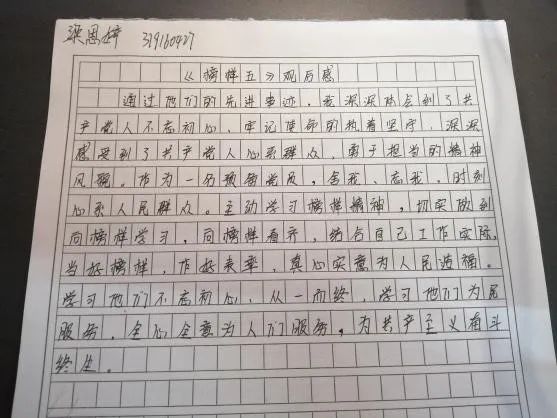 梁思婷 319160427
《榜样五》观后感
通过他们的先进事迹,我深深体会到了共
产党人不忘初心,牢记使命的执着坚守,深深
感受到了共产党人心系群众,勇于担当的精神
风貌。作为一名预备党员,舍我、忘我、时刻
心系人民群众。主动学习榜样精神,切实做到
向榜样学习,向榜样看齐,结合自己工作实际,
当好榜样,作好表率,真心实意为人民造福。
学习他们不忘初心,从一而终,学习他们为民
服务,全心全意为人们服务,为共产主义奋斗
终生。